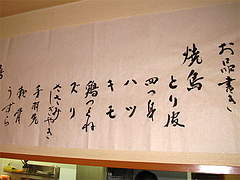 お品書き
焼鳥
とり皮
四つ身
ハツ
キモ
鶏つくね
ズリ
ささみ
しぎやき
手羽先
軟骨
うずら